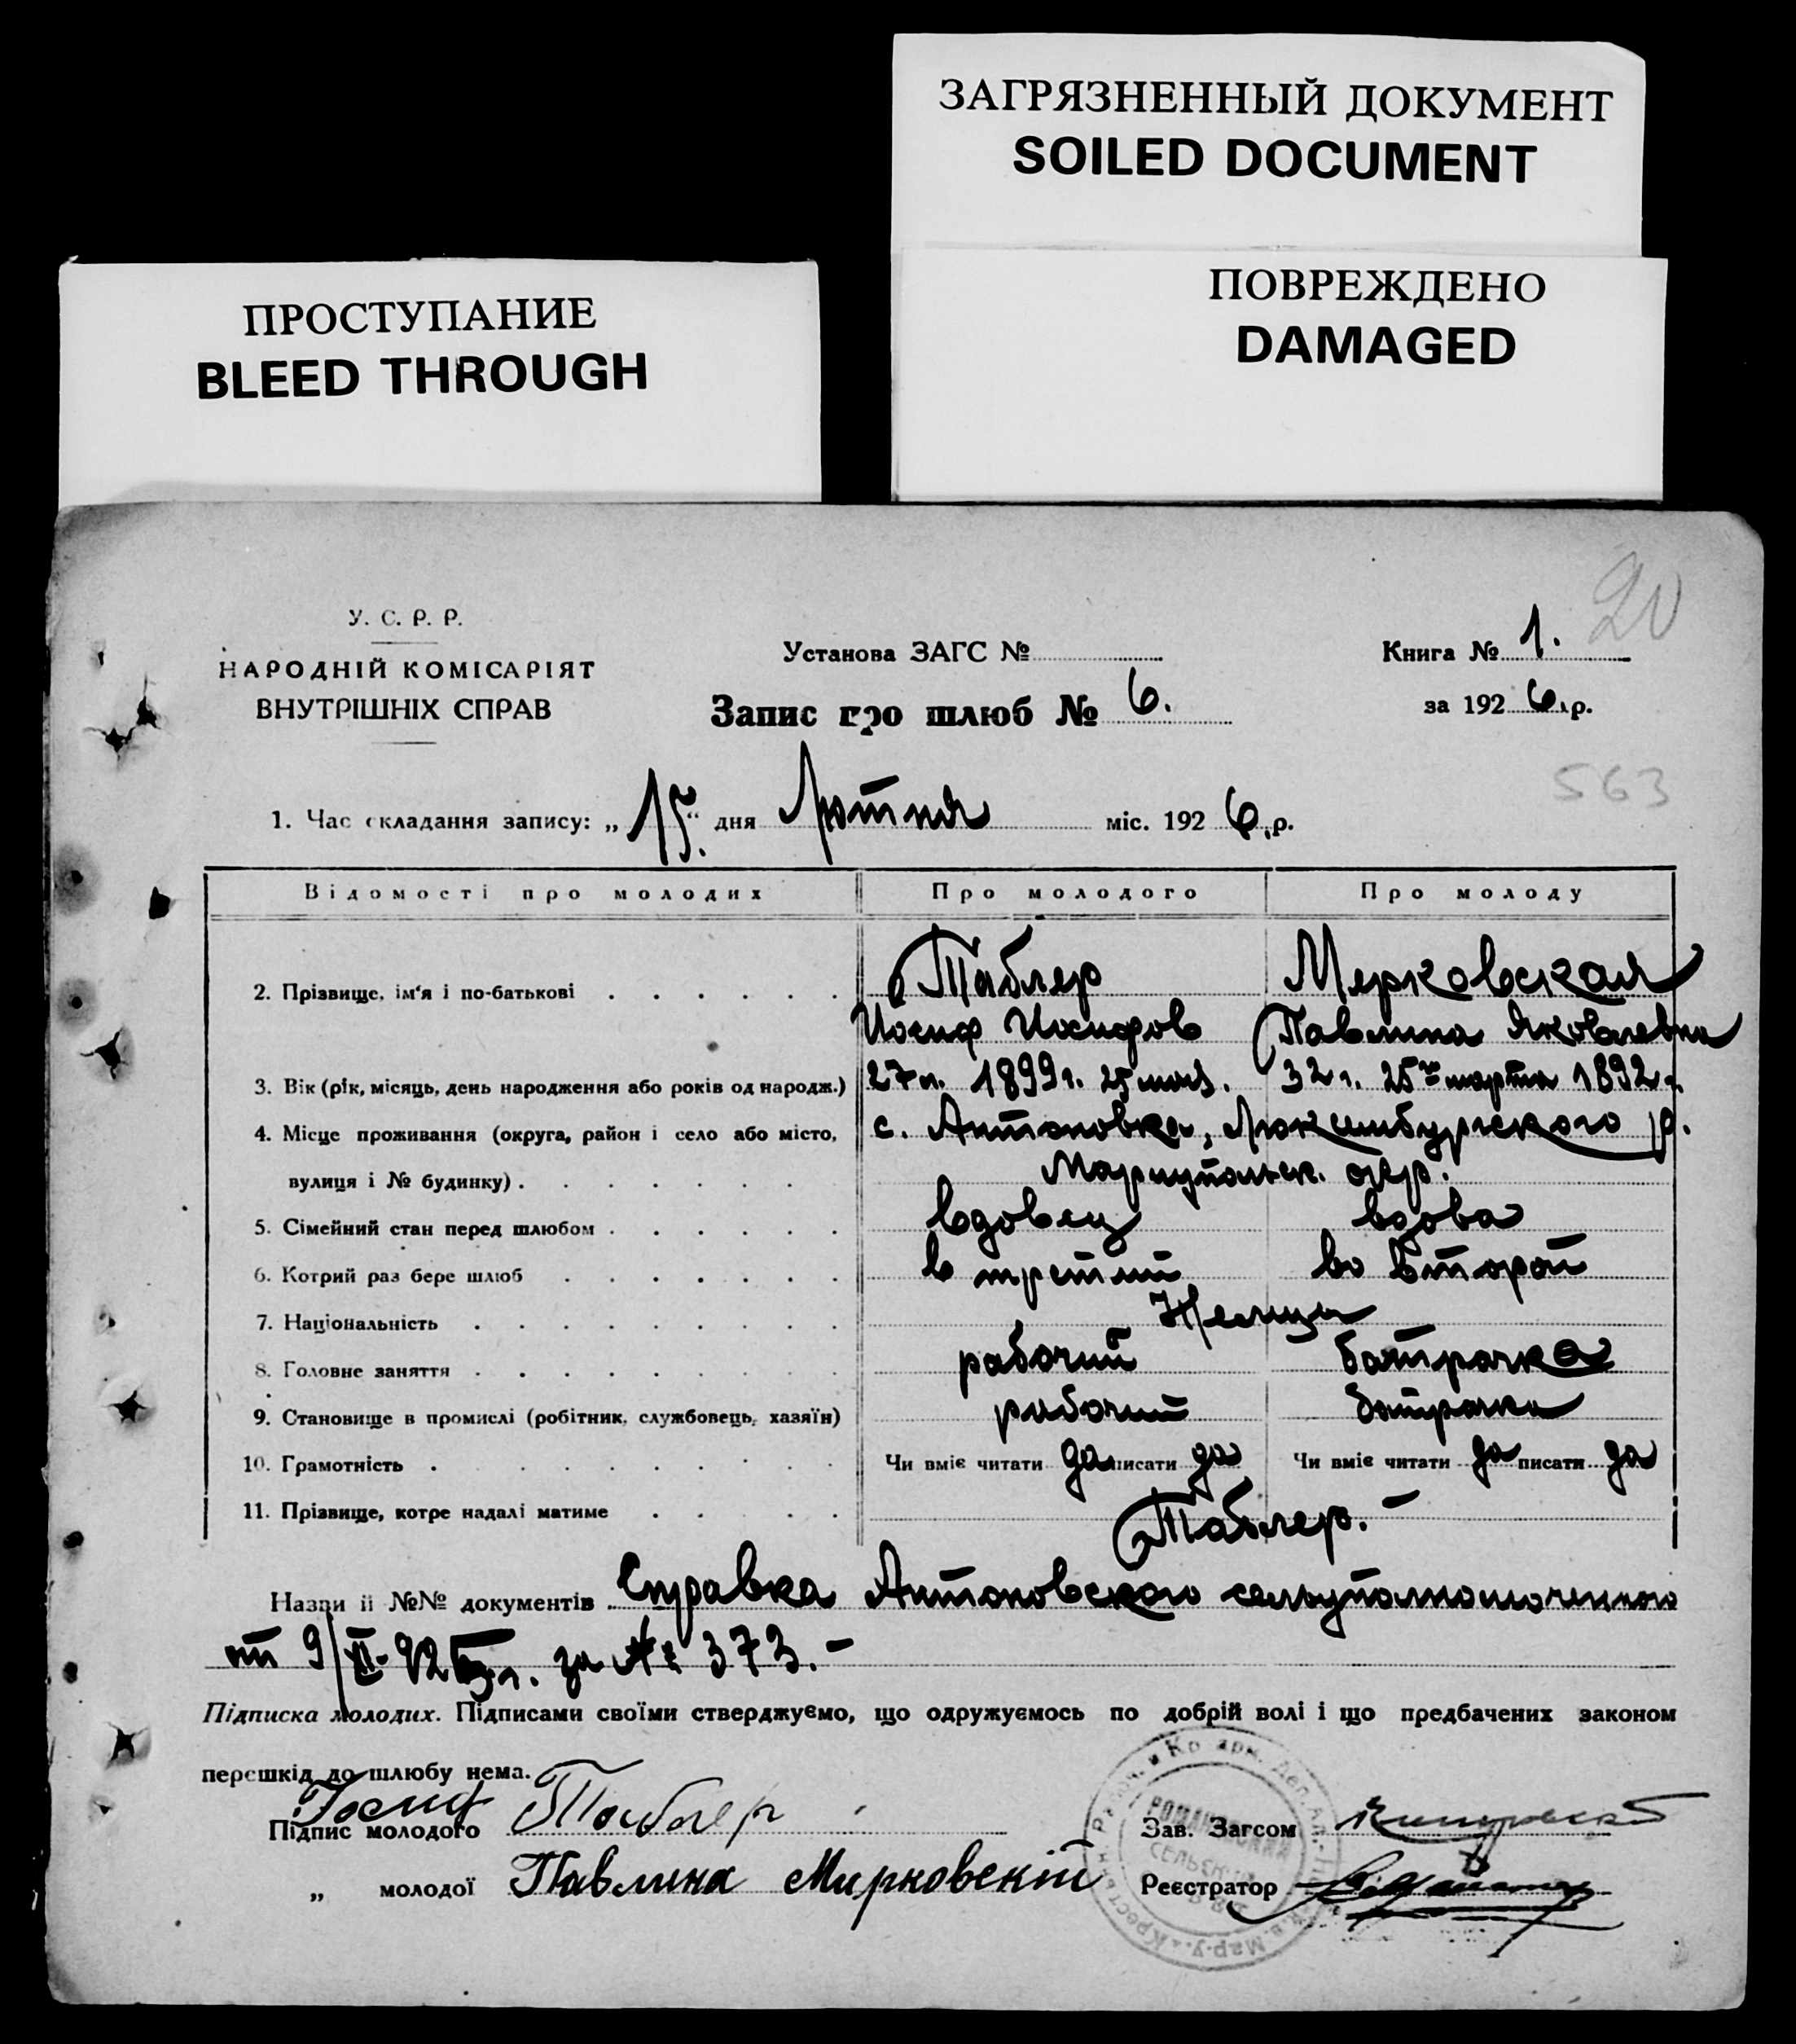 ЗАГРЯЗНЕННЫЙ ДОКУМЕНТ
SOILED DOCUMENT
ПОВРЕЖДЕНО
DAMAGED
ПРОСТУПАНИЕ
BLEED THROUGH
20
У. С. Р. Р.
НАРОДНІЙ КОМІСАРІЯТ
ВНУТРІШНІХ СПРАВ
Установа ЗАГС №
Книга № 1.
Запис про шлюб № 6.
за 1926 р.
563
1. Час складання запису: „15“ дня Лютня міс. 1926 р.
Відомості про молодих Про молодого Про молоду
2. Прізвище, ім'я і по-батькові Таблер Мерковская
Иосиф Иосифов Павлина Яковлевна
3. Вік (рік, місяць, день народження або років од народж.) 27 л. 1899 г. 25 32 г. 25го марта 1892 г.
4. Місце проживання (округа, район і село або місто, с. Антоновка, Люксембургского р.
вулиця і № будинку) Мариупольск. окр.
5. Сімейний стан перед шлюбом вдовец вдова
6. Котрий раз бере шлюб в третий во второй
7. Національність Немцы
8. Головне заняття рабочий батрачка
9. Становище в промислі (робітник, службовець, хазяїн) рабочий батрачка
10. Грамотність Чи вміє читати да писати да Чи вміє читати да писати да
11. Прізвище, котре надалі матиме Таблер.
Назви й №№ документів Справка Антоновского сельуполномоченного
от 9/II-92 г. за № 373.-
Підписка молодих. Підписами своїми стверджуємо, що одружуємось по добрій волі і що предбачених законом
перешкід до шлюбу нема.
Підпис молодого Иосиф Таблер
Зав. Загсом
„ молодої Павлина Мирковскій
Реєстратор